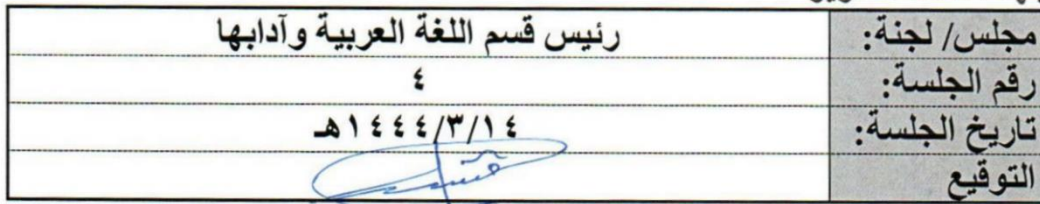 مجلس/ لجنة: رئيس قسم اللغة العربية وآدابها
رقم الجلسة: ٤
تاريخ الجلسة: ١٤٤٤/٣/١٤هـ
التوقيع